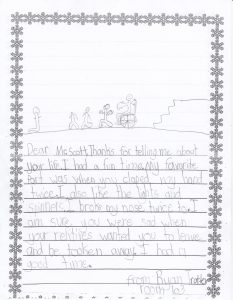 Dear Ms Scott, Thanks for telling me about
your life. I had a fun time. My favorite
Part was when you claped
twice. I also like the
I broke my nose twice to. I
am sure you were sad when
your relitives wanted you to leave
and be tooken away. I had a
good time.
from Ryan
room